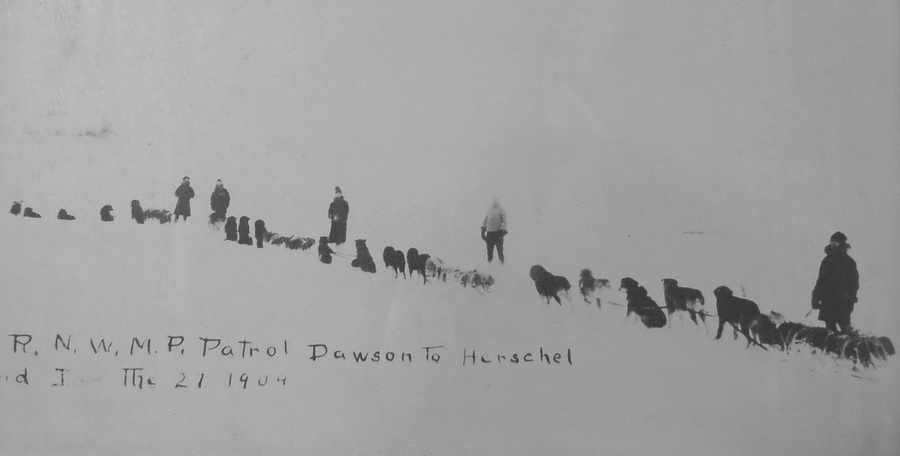 R. N. W. M. P. Patrol Dawson To Herschel
The 27 1909